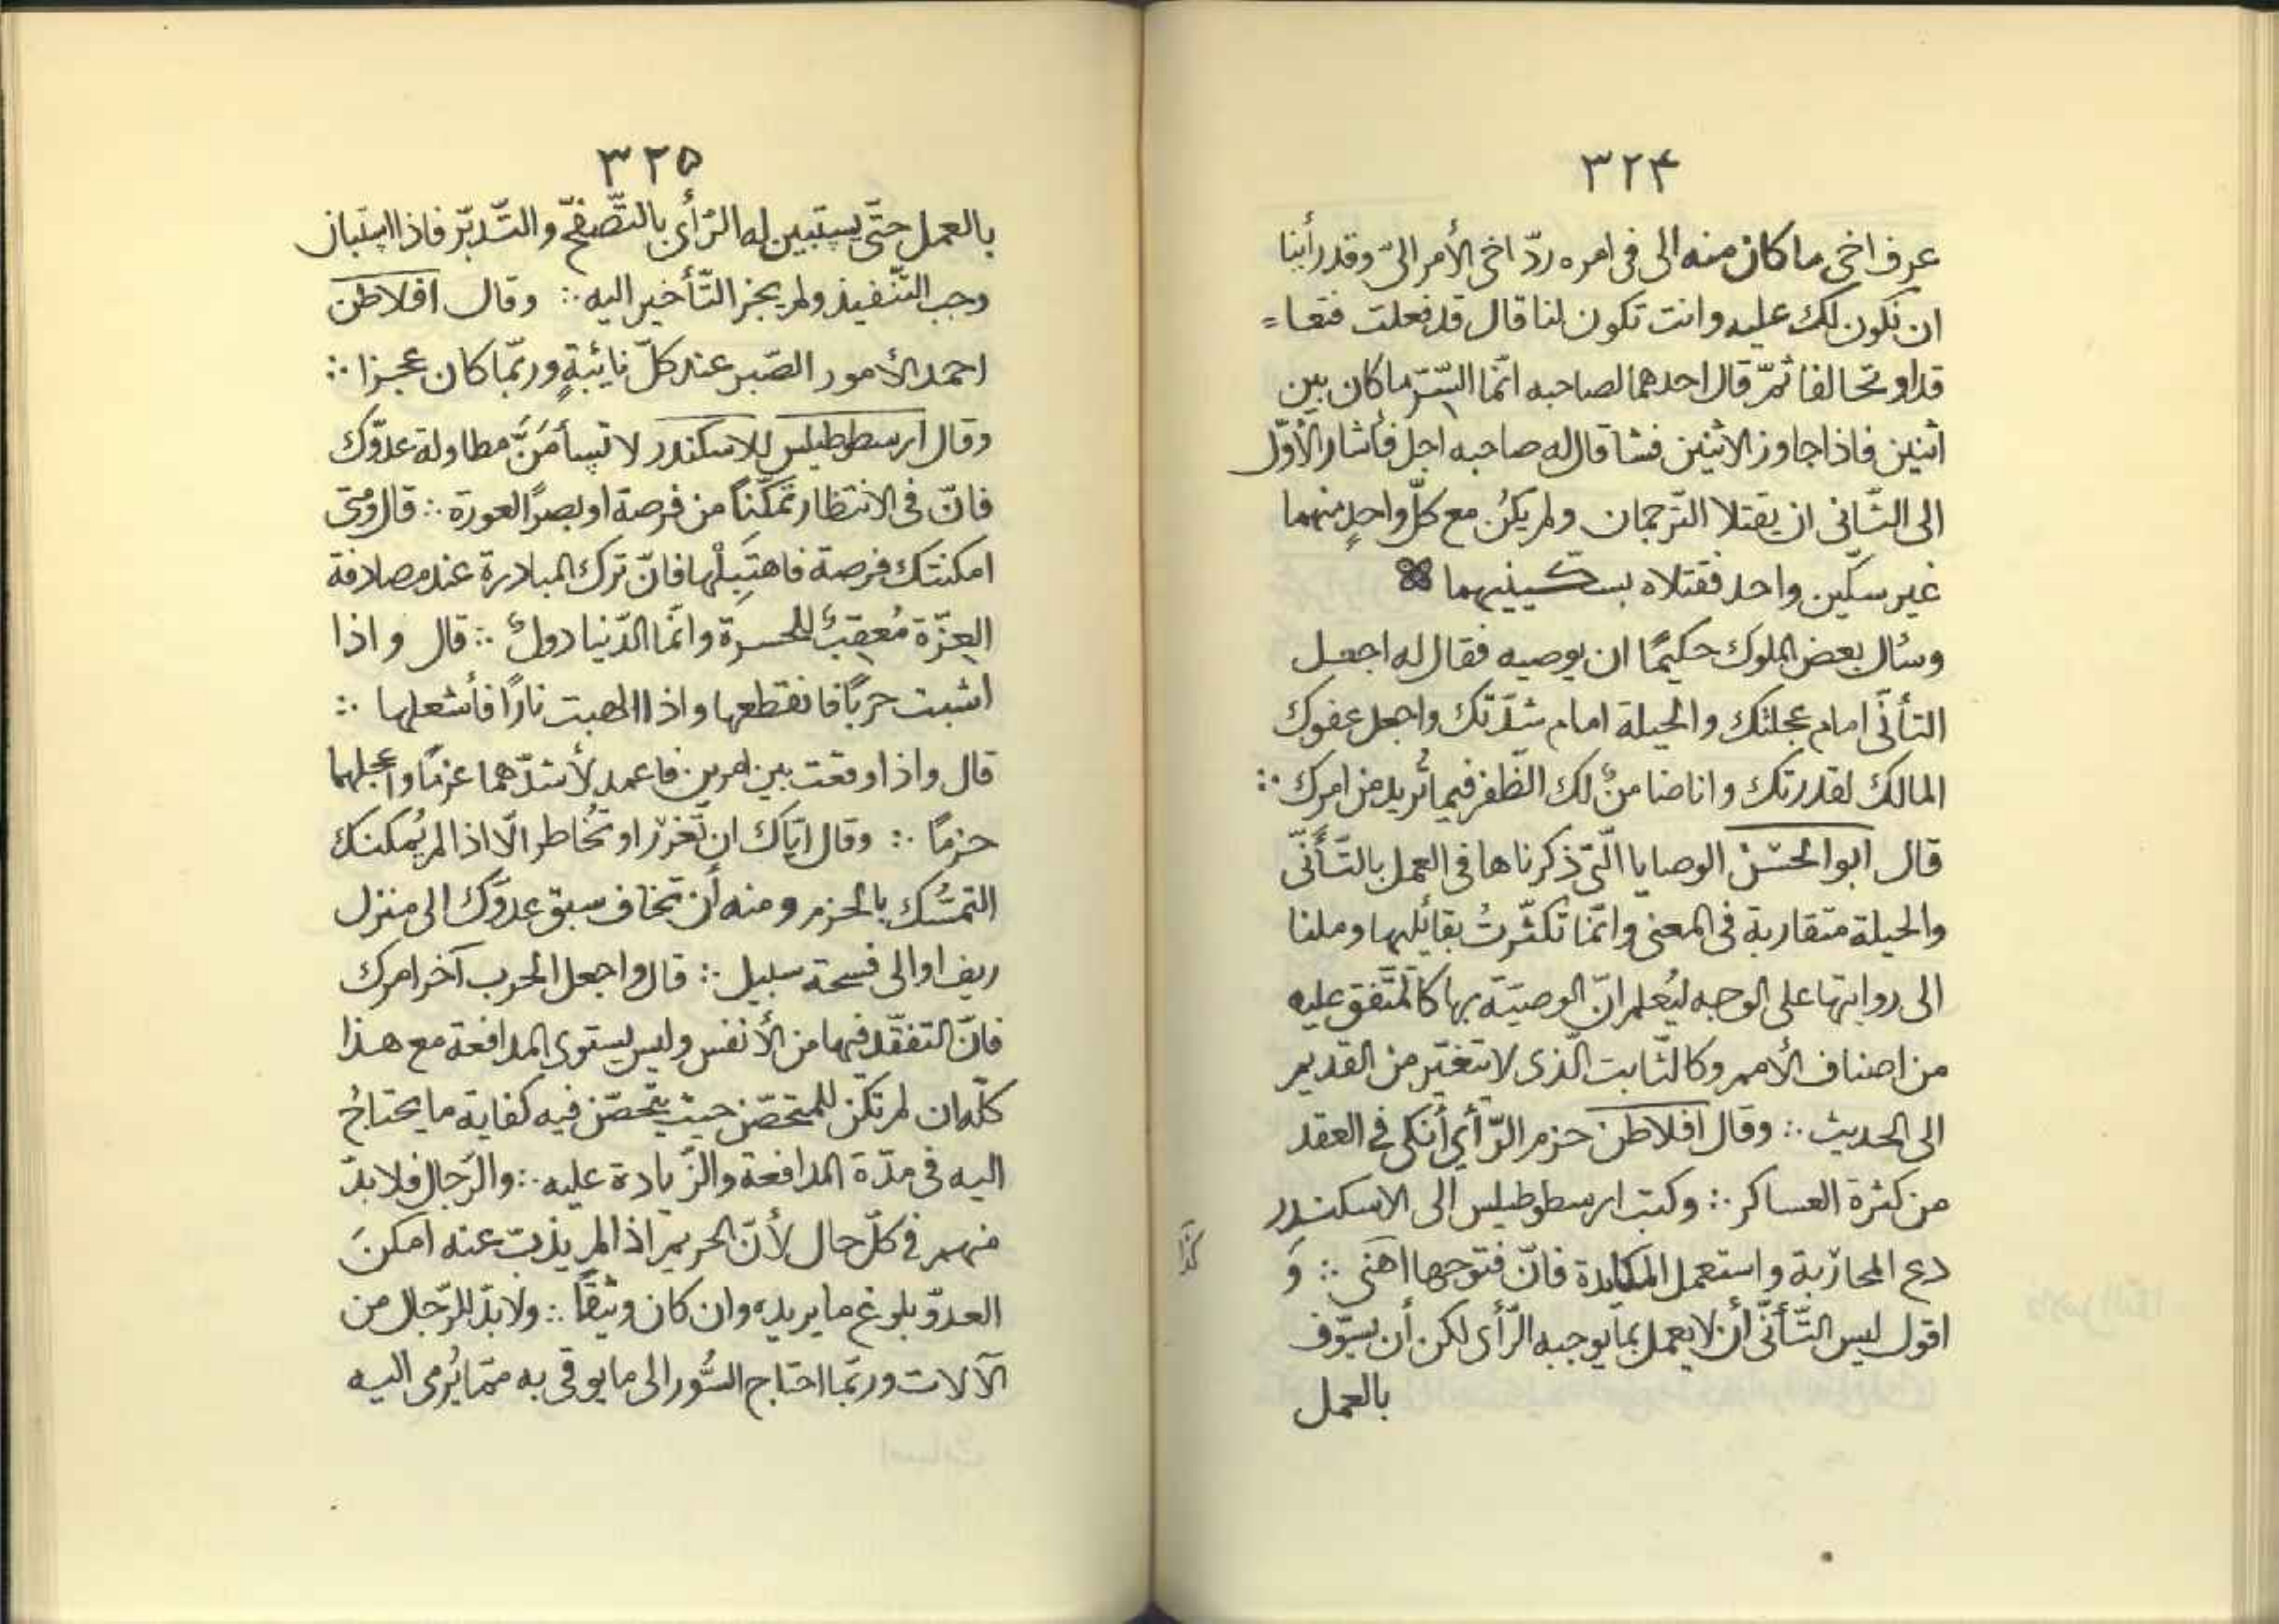 ٣٢۴
عرف اخى ما كان منه الى فى امره ردّ اخى الأمر الىّ وقد رأينا
ان نكون لك عليه وانت تكون لنا قال قد فعلت فتعا=
قدا و تحالفا ثمّ قال احدهما لصاحبه انّما السّرّ ما كان بين
اثنين فاذا جاوز الاثنين فشا قال له صاحبه اجل فأشار الأوّل
الى الثّانى ان يقتلا التّرجمان ولم يكن مع كلّ واحدٍ منهما
غير سكّين واحد فقتلاه بسكّينيهما
وسأل بعض الملوك حكيمًا ان يوصيه فقال له اجعل
التأنّى امام عجلتك والحيلة امام شدّتك واجعل عفوك
المالك لقدرتك وانا ضامنٌ لك الظّفر فيما تُريد من امرك ∴
قال ابو الحسن الوصايا الّتى ذكرناها فى العمل بالتّأنّى
والحيلة متقاربة فى المعنى وانّما تكثّرتُ بقائليها وملنا
الى روايتها على الوجه ليُعلم انّ الوصيّة بها كالمتّفق عليه
من اصناف الأمم وكالثّابت الّذى لا يتغيّر من القديم
الى الحديث ∴ وقال افلاطن حزم الرّأي أنكى فى العقد
من كثرة العساكر ∴ وكتب ارسطوطيلس الى الاسكندر
دع المحاربة واستعمل المكايدة فانّ فتوحها اهنى ∴ وَ
كذا
اقول ليس التّأنّى أن لا يعمل بما يوجبه الرّأى لكن أن يسوّف
بالعمل
٣٢۵
بالعمل حتّى يستبين له الرّأى بالتّصفّح والتّدبّر فاذا استبان
وجب التّنفيذ ولم يجز التّأخير اليه ∴ وقال افلاطن
احمد الأمور الصّبر عند كلّ نائبةٍ وربّما كان عجزا ∴
وقال ارسطوطيلس للاسكندر لا تسأمَنَّ مطاولة عدوّك
فانّ فى الانتظار تمكّنًا من فرصة او بصرًا لعورة ∴ قال ومتى
امكنتك فرصة فاهتبلها فانّ ترك المبادرة عند مصادفة
الغِرّة مُعقِبٌ للحسرة وانّما الدّنيا دولٌ ∴ قال واذا
اشبت حربًا فانقطعها واذا الهبت نارًا فأشعلها ∴
قال واذا وقعت بين امرين فاعمد لأشدّهما عزمًا واعجلهما
حزمًا ∴ وقال ايّاك ان تغرّر او تُخاطر الّا اذا لم يُمكنك
التمسّك بالحزم ومنه أن تخاف سبق عدوّك الى منزل
ريف او الى فسحة سبيل ∴ قال واجعل الحرب آخر امرك
فانّ التفقّد فيها من الأنفس وليس يستوى المدافعة مع هذا
كلّه ان لم تكن للمتحصّن حيث يتحصّن فيه كفاية ما يحتاجُ
اليه فى مدّة المدافعة والزّيادة عليه ∴ والرّجال فلا بدّ
منهم فى كلّ حال لأنّ الحريم اذا لم يذبّ عنه امكنَ
العدوّ بلوغ ما يريده وان كان وثيقًا ∴ ولا بدّ للرّجال من
الآلات وربّما احتاج السُّور الى ما يوقى به ممّا يُرمى اليه